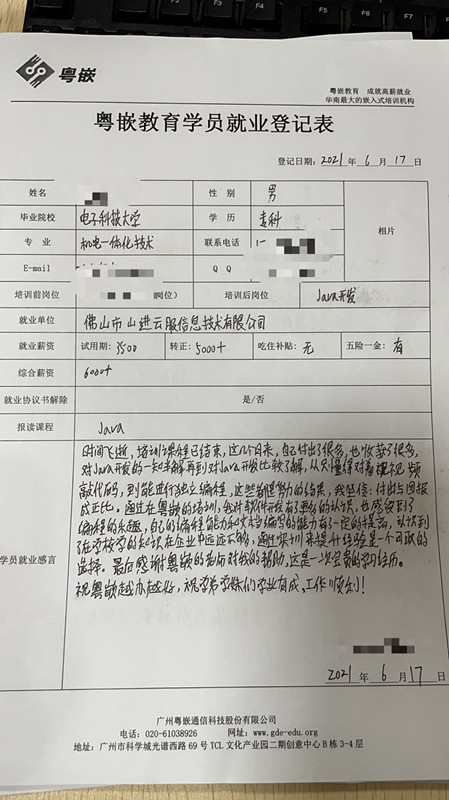 粤嵌
粤嵌教育 成就高薪就业
华南最大的嵌入式培训机构
粤嵌教育学员就业登记表
登记日期：2021年6月17日
姓名 性 别 男
毕业院校 电子科技大学 学 历 专科 相片
专 业 机电一体化技术 联系电话 1
E-mail Q Q
培训前岗位 岗位） 培训后岗位 Java开发
就业单位 佛山市山进云服信息技术有限公司
就业薪资 试用期：3500 转正：5000+ 吃住补贴：无 五险一金：有
综合薪资 6000+
就业协议书解除 是/否
报读课程 Java
学员就业感言
时间飞逝，培训课程已结束，这几个月来，自己付出了很多，也收获了很多，
对Java开发的一知半解再到对Java开发比较了解，从只懂得对着视频
敲代码，到能进行独立编程，这些都是努力的结果，我坚信：付出与回报
成正比。通过在粤嵌的培训，我对软件开发有了更多的认识，也感受到了
编程的乐趣，自己的编程能力和文档编写的能力有了一定的提高，认识到
了在学校学的知识在企业中远远不够，通过实训来提升经验是一个可取的
选择。最后感谢粤嵌的老师对我的帮助，这是一次宝贵的学习经历。
祝粤嵌越办越好，祝学弟学妹们学业有成、工作顺利！
2021年6月17日
广州粤嵌通信科技股份有限公司
电话：020-61038926 网址：www.gde-edu.org
地址：广州市科学城光谱西路69号TCL文化产业园二期创意中心B栋3-4层